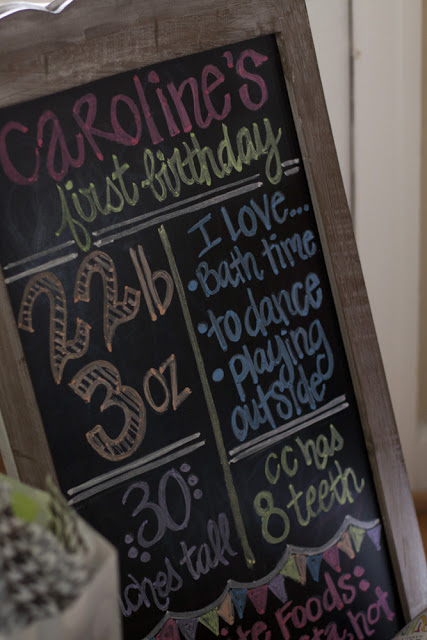 CAROLINE'S
first birthday
22 lb
3 oz
I love...
• Bath time
• to dance
• playing
outside
30
tall
CC has
8 teeth
Foods:
hot